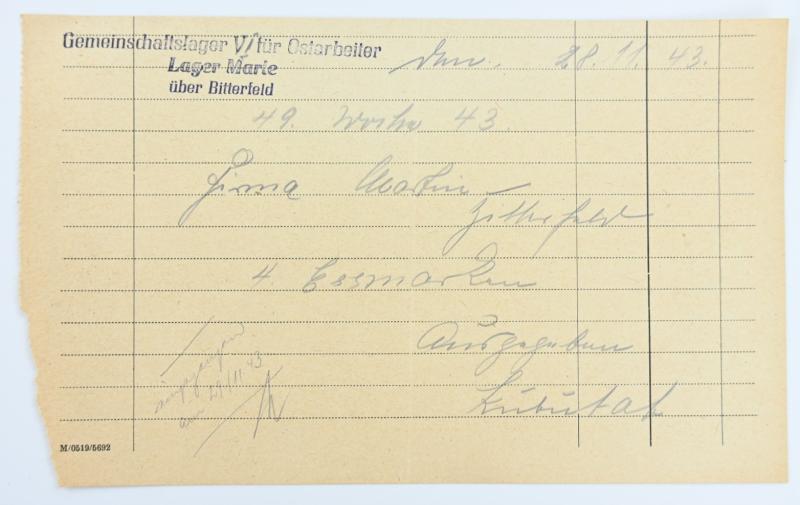 Gemeinschaftslager VI für Ostarbeiter
Lager Marie
über Bitterfeld
den. 28.11.43.
49. Woche 43.
Firma Martin
Bitterfeld
4 Essmarken
Ausgegeben
Kubutat
eingegangen
am 29/11.43
M/0519/5692